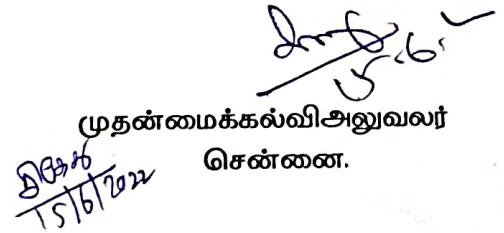 முதன்மைக்கல்விஅலுவலர்
சென்னை.
15/6/2022